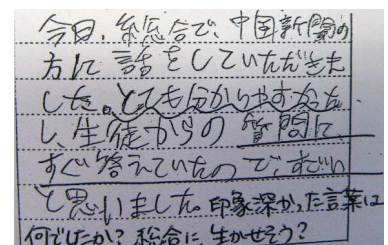 今日、総合で、中国新聞の
方に話をしていただきま
した。とても分かりやすかった
し、生徒からの質問に
すぐ答えていたので、すごい
と思いました。印象深かった言葉は
何でしたか？総合に生かせそう？